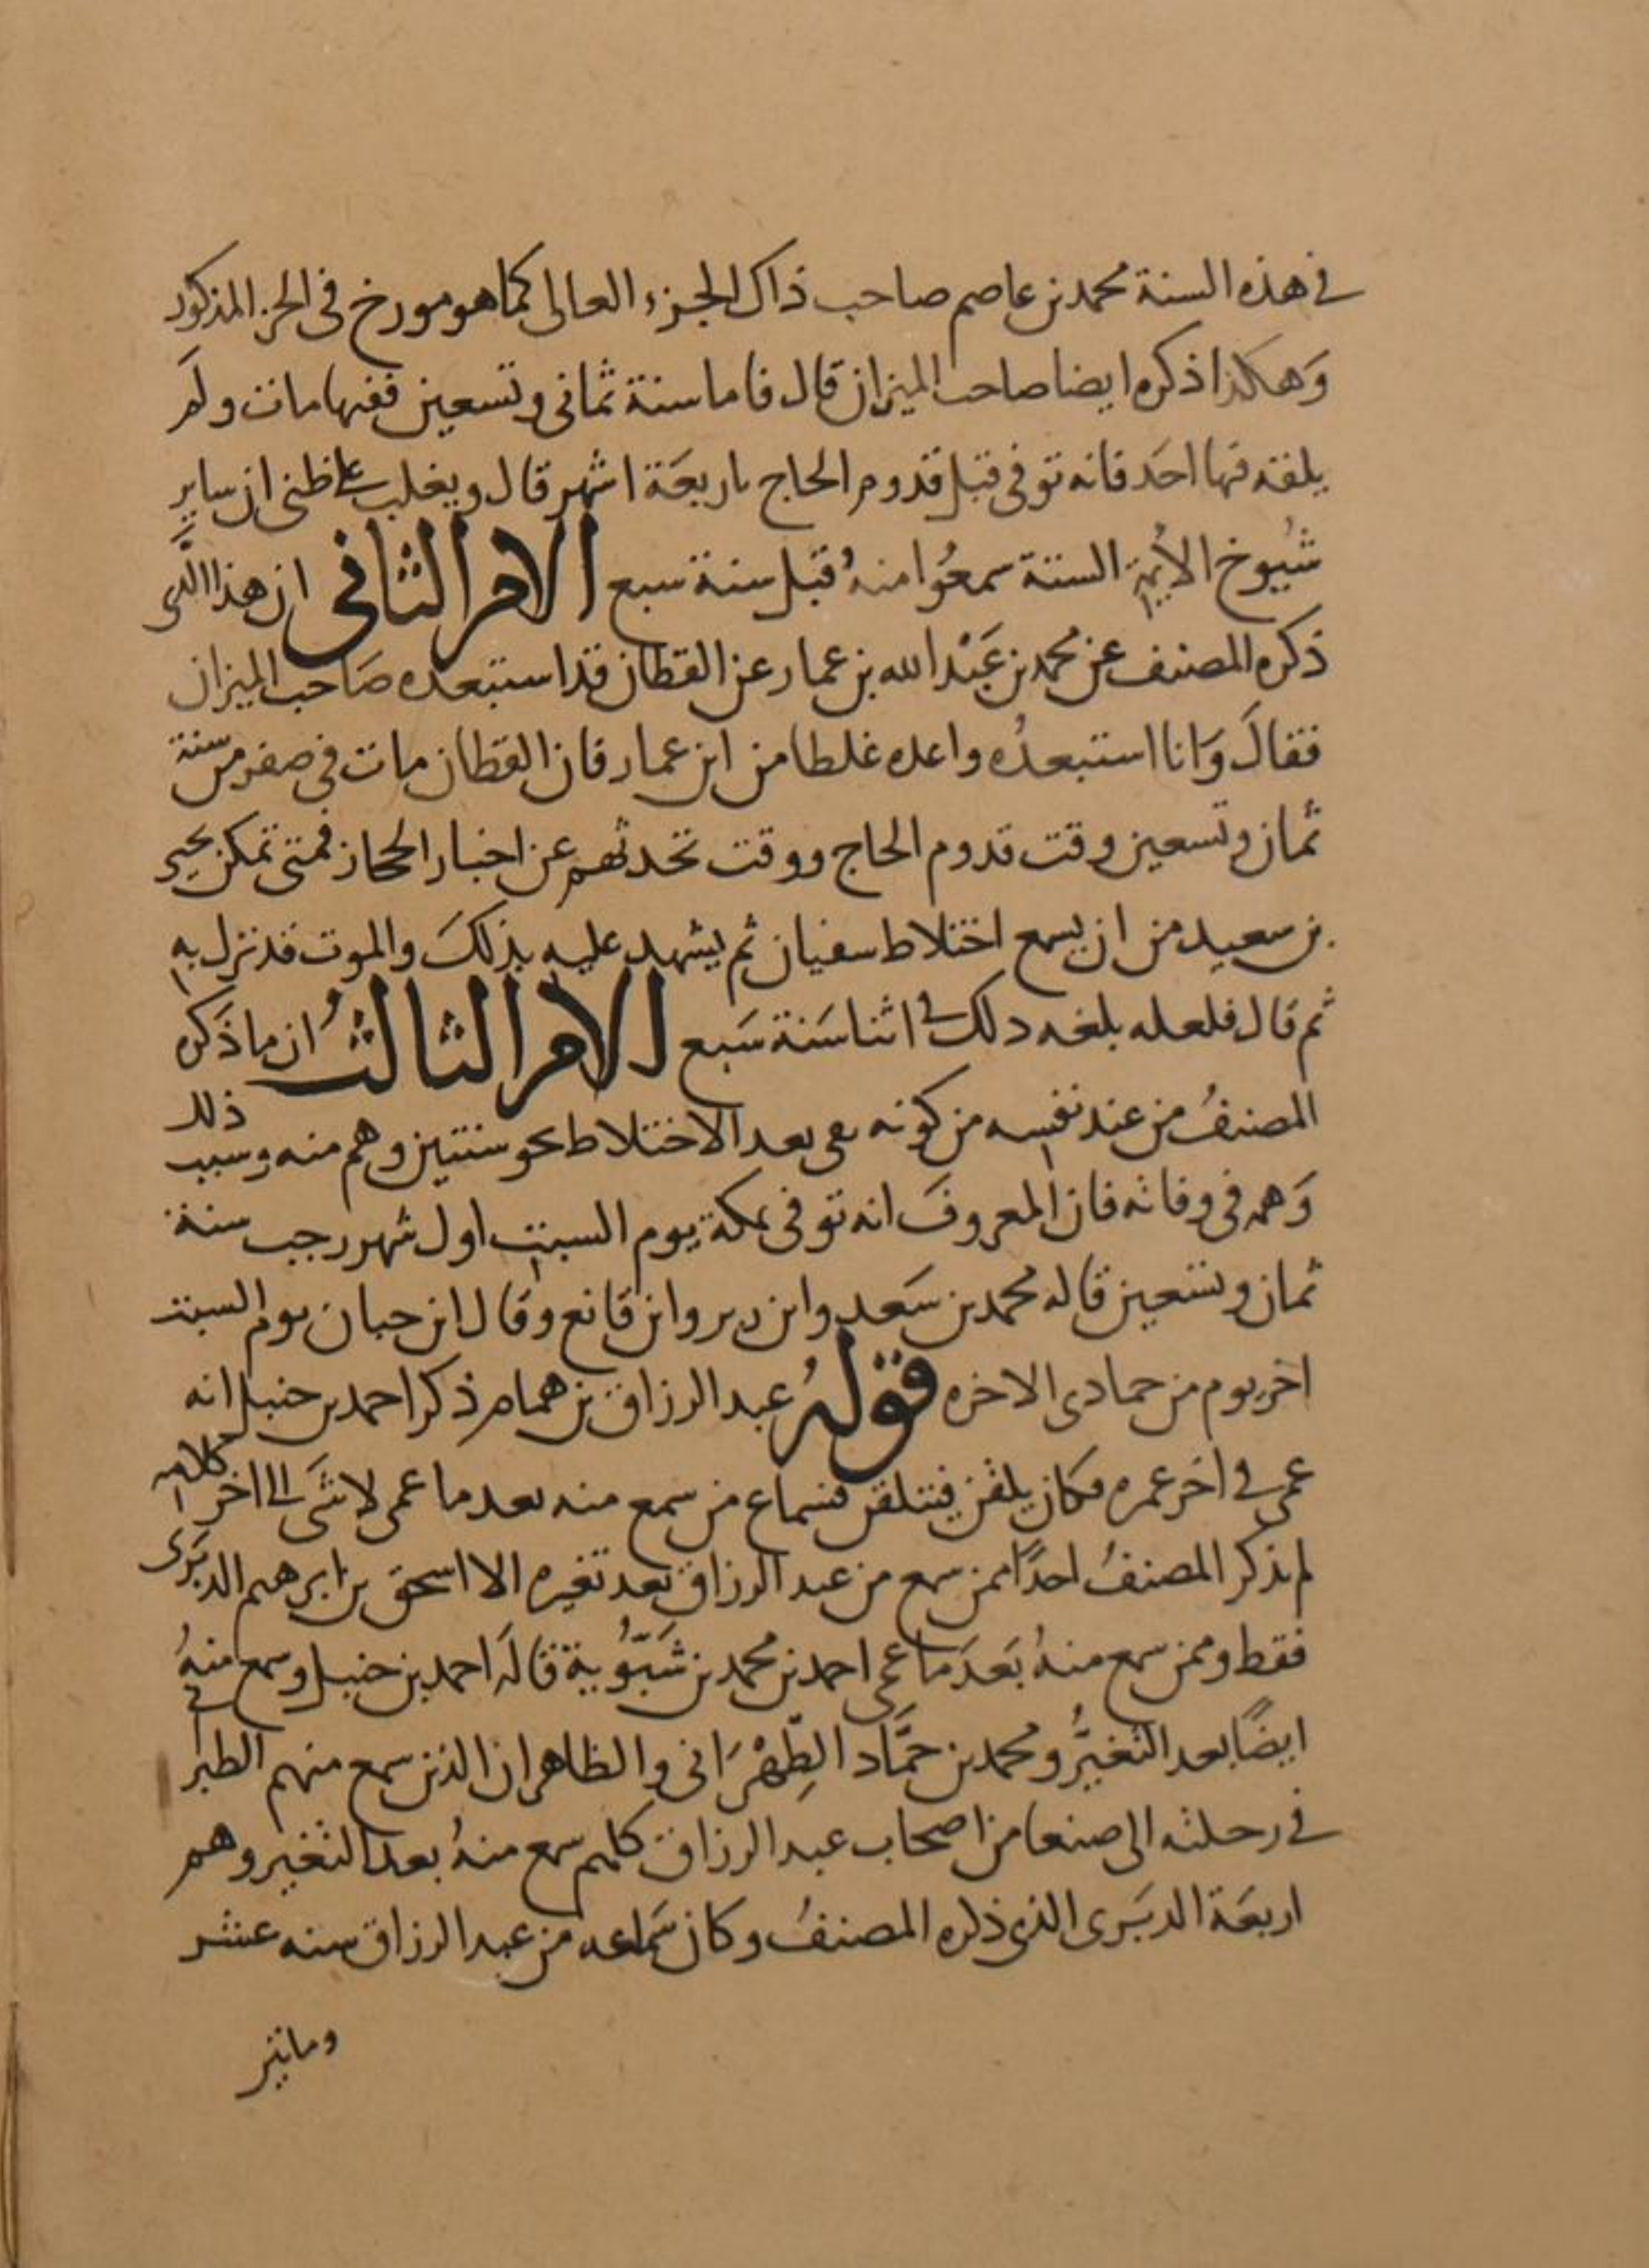 في هذه السنة محمد بن عاصم صاحب ذاك الجزء العالى كما هو مورخ فى الجز المذكور
وَهكذا ذكره ايضا صاحب الميزان قال فاما سنة ثمانى وتسعين ففيها مات ولَم
يلقه فيها احَد فانه توفى قبل قدوم الحاج باربعَة اشهر قال ويغلب على ظنى ان ساير
شيُوخ الأيمة الستة سمعُوا منهُ قبل سنة سبع الامر الثانى ان هذا الَّذى
ذكره المصنف عن محمد بن عَبْد الله بن عمار عن القطان قد استبعده صَاحب الميزان
فقالَ وَانا استبعدُه واعده غلطا من ابن عمار فان القطان مات فى صفر من سنة
ثمان وتسعين وقت قدوم الحاج ووقت تحدثهم عن اخبار الحجاز فمتى تمكن يحيى
بن سعيد من ان يسمع اختلاط سفيان ثم يشهد عليه بذلكَ والموت قد نزل به
ثم قال فلعله بلغه ذلك في اثنا سَنة سَبع الامر الثالثُ ان ما ذكَره
المصنفُ من عند نفسه من كونه بقى بعد الاختلاط نحو سنتين وهم منه وسبب ذلك
وَهمه فى وفاته فان المعروفَ انه توفى بمكة يوم السبت اول شهر رجب سنة
ثمان وتسعين قاله محمد بن سَعد وابن زبر وابن قانع وقال ابن حبان يوم السبت
اخر يوم من جمادى الاخره قولهُ عبد الرزاق بن همام ذكر احمد بن حنبل انه
عمى في اخر عمره فكان يلقن فيتلقن فسماع من سمع منه بعد ما عمى لا شَى الى اخر كلامه
لم يذكر المصنفُ احدًا ممن سمع من عبد الرزاق بَعد تغيره الا اسحق بن ابرهيم الدبَرى
فقط وممن سمع منهُ بَعدَ ما عمى احمد بن محمد بن شَبّوُية قالَه احمد بن حنبل وسمع منهُ
ايضًا بعد التغيُّر ومحمد بن حَمَّاد الطِّهْرَانى والظاهر ان الذين سمع منهم الطبرانى
في رحلته الى صنعا من اصحاب عبد الرزاق كلهم سمع منهُ بعد التغير وهم
اربعَة الدبَرى الذى ذكره المصنفُ وكان سَماعه من عبد الرزاق سنه عشر
وماتير